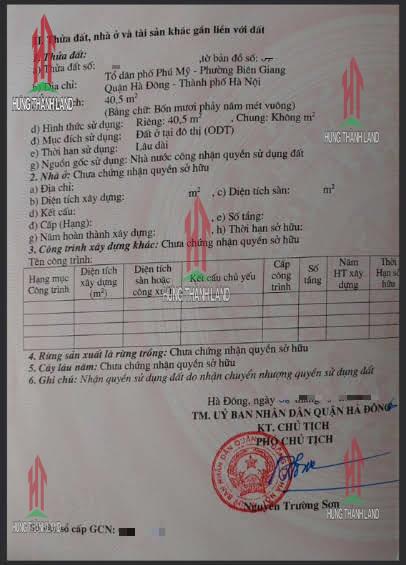 II. Thửa đất, nhà ở và tài sản khác gắn liền với đất
1. Thửa đất:
a) Thửa đất số: , tờ bản đồ số:
b) Địa chỉ: Tổ dân phố Phú Mỹ - Phường Biên Giang
Quận Hà Đông - Thành phố Hà Nội
tích: 40,5 m²
(Bằng chữ: Bốn mươi phảy năm mét vuông)
d) Hình thức sử dụng: Riêng: 40,5 m² , Chung: Không m²
đ) Mục đích sử dụng: Đất ở tại đô thị (ODT)
e) Thời hạn sử dụng: Lâu dài
g) Nguồn gốc sử dụng: Nhà nước công nhận quyền sử dụng đất
2. Nhà ở: Chưa chứng nhận quyền sở hữu
a) Địa chỉ:
b) Diện tích xây dựng: m² , c) Diện tích sàn: m²
d) Kết cấu:
đ) Cấp (Hạng): , e) Số tầng:
g) Năm hoàn thành xây dựng: , h) Thời hạn sở hữu:
3. Công trình xây dựng khác: Chưa chứng nhận quyền sở hữu
Tên công trình:
Hạng mục Công trình
Diện tích xây dựng (m²)
Diện tích sàn hoặc công
Kết cấu chủ yếu
Cấp công trình
Số tầng
Năm HT xây dựng
Thời Hạn sở hữu
4. Rừng sản xuất là rừng trồng: Chưa chứng nhận quyền sở hữu
5. Cây lâu năm: Chưa chứng nhận quyền sở hữu
6. Ghi chú: Nhận quyền sử dụng đất do nhận chuyển nhượng quyền sử dụng đất
Hà Đông, ngày
TM. UỶ BAN NHÂN DÂN QUẬN HÀ ĐÔNG
KT. CHỦ TỊCH
PHÓ CHỦ TỊCH
Nguyễn Trường Sơn
Số vào sổ cấp GCN:
HUNG THANH LAND
HUNG THANH LAND
HUNG THANH LAND
HUNG THANH LAND
HUNG THANH LAND